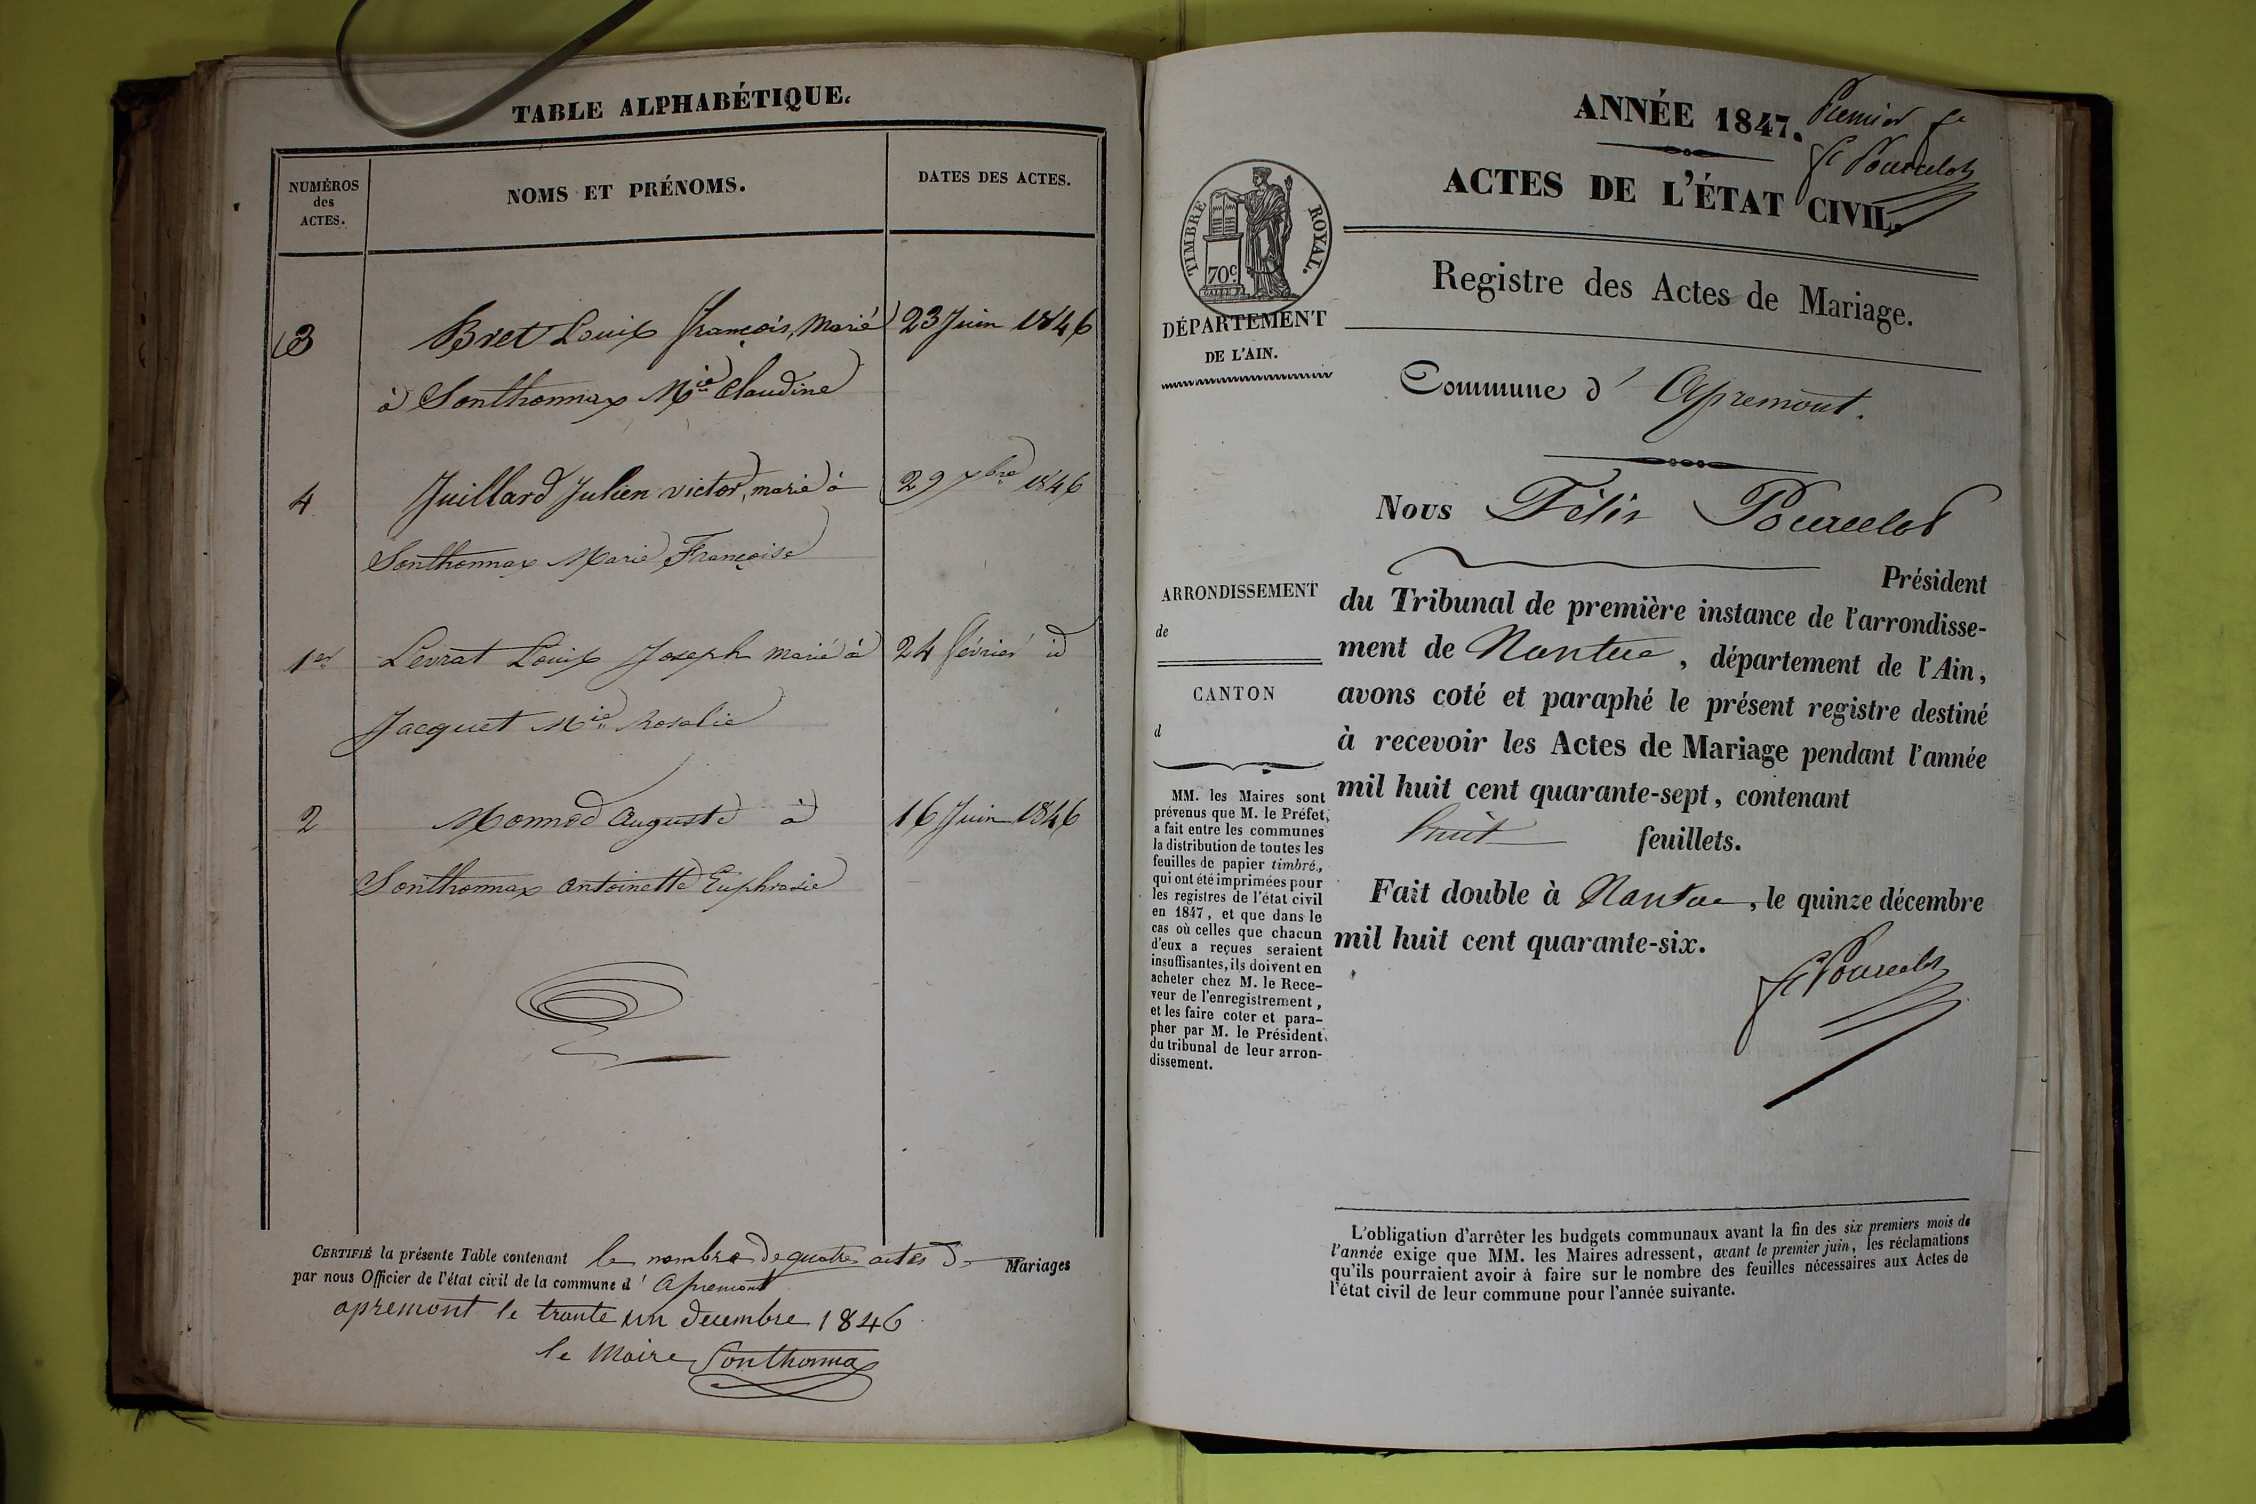 TABLE ALPHABÉTIQUE.
NUMÉROS
des
ACTES.
NOMS ET PRÉNOMS.
DATES DES ACTES.
3 Bret Louis françois, marié 23 Juin 1846
à Sonthonnax Mie Claudine
4 Juillard Julien victor, marié à 29 7bre 1846
Sonthonnax Marie Françoise
1er Levrat Louis Joseph marié à 24 février id
Jacquet Mie Rosalie
2 Monnod Auguste à 16 Juin 1846
Sonthonnax Antoinette Euphrasie
CERTIFIÉ la présente Table contenant le nombre de quatre actes de Mariages
par nous Officier de l'état civil de la commune d' Apremont
apremont le trante un decembre 1846
le Maire Sonthonnax
ANNÉE 1847.
Premier
F Pourcelot
ACTES DE L'ÉTAT CIVIL.
TIMBRE ROYAL.
70c
Registre des Actes de Mariage.
DÉPARTEMENT
DE L'AIN.
Commune d' Apremont.
Nous Félix Pourcelot
Président
ARRONDISSEMENT
de
CANTON
d
du Tribunal de première instance de l'arrondisse-
ment de Nantua, département de l'Ain,
avons coté et paraphé le présent registre destiné
à recevoir les Actes de Mariage pendant l'année
mil huit cent quarante-sept, contenant
huit feuillets.
Fait double à Nantua, le quinze décembre
mil huit cent quarante-six.
F Pourcelot
MM. les Maires sont
prévenus que M. le Préfet,
a fait entre les communes
la distribution de toutes les
feuilles de papier timbré,
qui ont été imprimées pour
les registres de l'état civil
en 1847, et que dans le
cas où celles que chacun
d'eux a reçues seraient
insuffisantes, ils doivent en
acheter chez M. le Rece-
veur de l'enregistrement,
et les faire coter et para-
pher par M. le Président
du tribunal de leur arron-
dissement.
L'obligation d'arrêter les budgets communaux avant la fin des six premiers mois de
l'année exige que MM. les Maires adressent, avant le premier juin, les réclamations
qu'ils pourraient avoir à faire sur le nombre des feuilles nécessaires aux Actes de
l'état civil de leur commune pour l'année suivante.